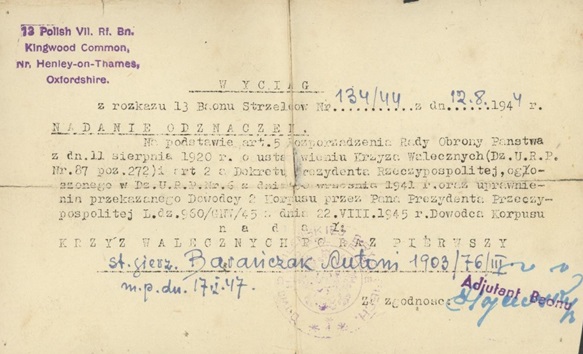 13 Polish Vll. Rf. Bn.
Kingwood Common,
Nr. Henley-on-Thames,
Oxfordshire.
W Y C I Ą G
z rozkazu 13 Baonu Strzelców Nr 134/44 z dn. 12.8.1944 r.
N A D A N I E O D Z N A C Z E Ń .
Na podstawie art.5 Rozporządzenia Rady Obrony Państwa
z dn.11 sierpnia 1920 r. o ustanowieniu Krzyża Walecznych(Dz.U.R.P.
Nr.87 poz.272)i art 2 a Dekretu Prezydenta Rzeczypospolitej,ogło-
szonego w Dz.U.R.P.Nr.6 z dnia września 1941 r.oraz uprawnie-
nia przekazanego Dowódcy 2 Korpusu przez Pana Prezydenta Rzeczy-
pospolitej L.dz.960/GNW/45 z dnia 22.VIII.1945 r.Dowódca Korpusu
n a d a ł:
K R Z Y Ż W A L E C Z N Y C H P O R A Z P I E R W S Z Y
Barańczak Antoni 1903/76/III
m.p.dn. 17.I.47.
Adjutant Baonu
Za zgodność